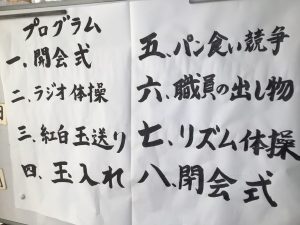 プログラム
一、開会式
二、ラジオ体操
三、紅白玉送り
四、玉入れ
五、パン食い競争
六、職員の出し物
七、リズム体操
八、閉会式